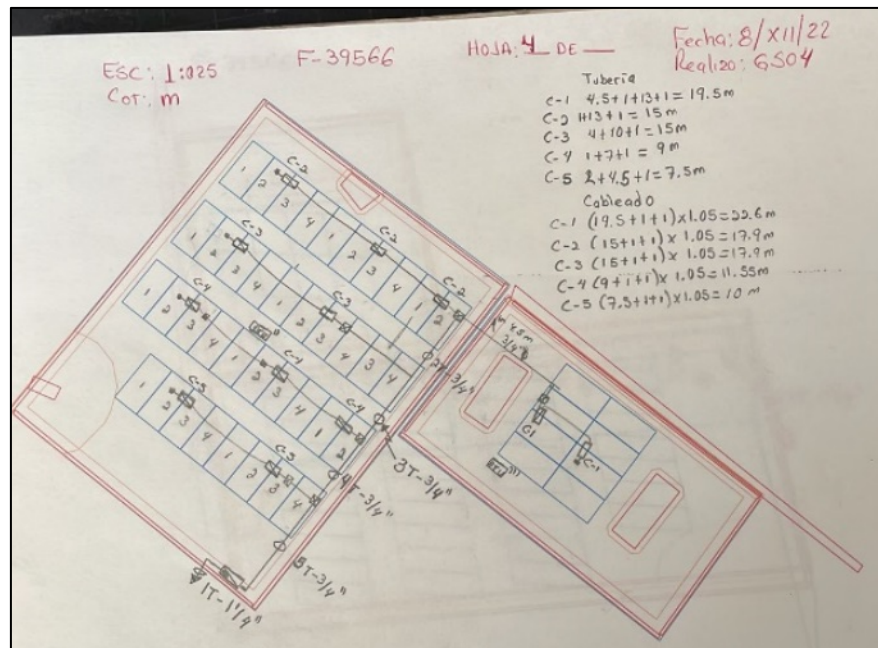 ESC: 1:025
Cot: m
F-39566
HOJA: 4 DE
Fecha: 8/XII/22
Realizo: GS04
Tuberia
C-1 4.5+1+13+1= 19.5m
C-2 1+13+1 = 15m
C-3 4+10+1=15m
C-4 1+7+1 = 9m
C-5 2+4.5+1=7.5m
Cableado
C-1 (19.5+1+1)x1.05=22.6m
C-2 (15+1+1)x 1.05=17.9m
C-3 (15+1+1)x 1.05=17.9m
C-4 (9+1+1)x 1.05=11.55m
C-5 (7.5+1+1)x1.05=10 m
C-2
1 2 3 4 1 2 3 4 1 2
C-2
C-2
C-3
1 2 3 4 1 2 3 4 3 4
C-3
C-4
1 2 3 4 1 2 3 4 1 2
C-4
C-4
C-5
1 2 3 4 1 2 3 4
C-5
3/4"
C1
C-1
2T-3/4"
3T-3/4"
4T-3/4"
5T-3/4"
1T-1 1/4"